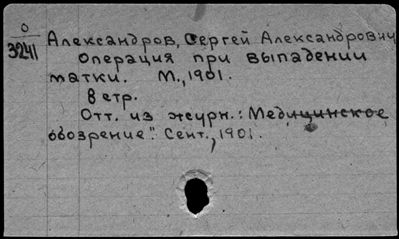 О
3241
Александров, Сергей Александрович
Операция при выпадении
матки. М., 1901.
8 стр.
Отт. из журн.: Медицинское
обозрение". Сент., 1901.